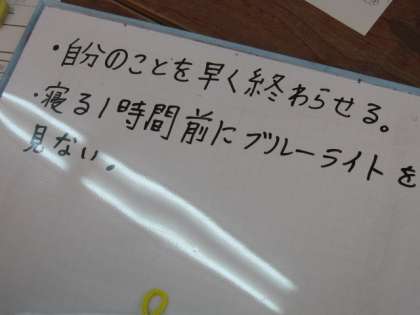 ・自分のことを早く終わらせる。
・寝る1時間前にブルーライトを
見ない。